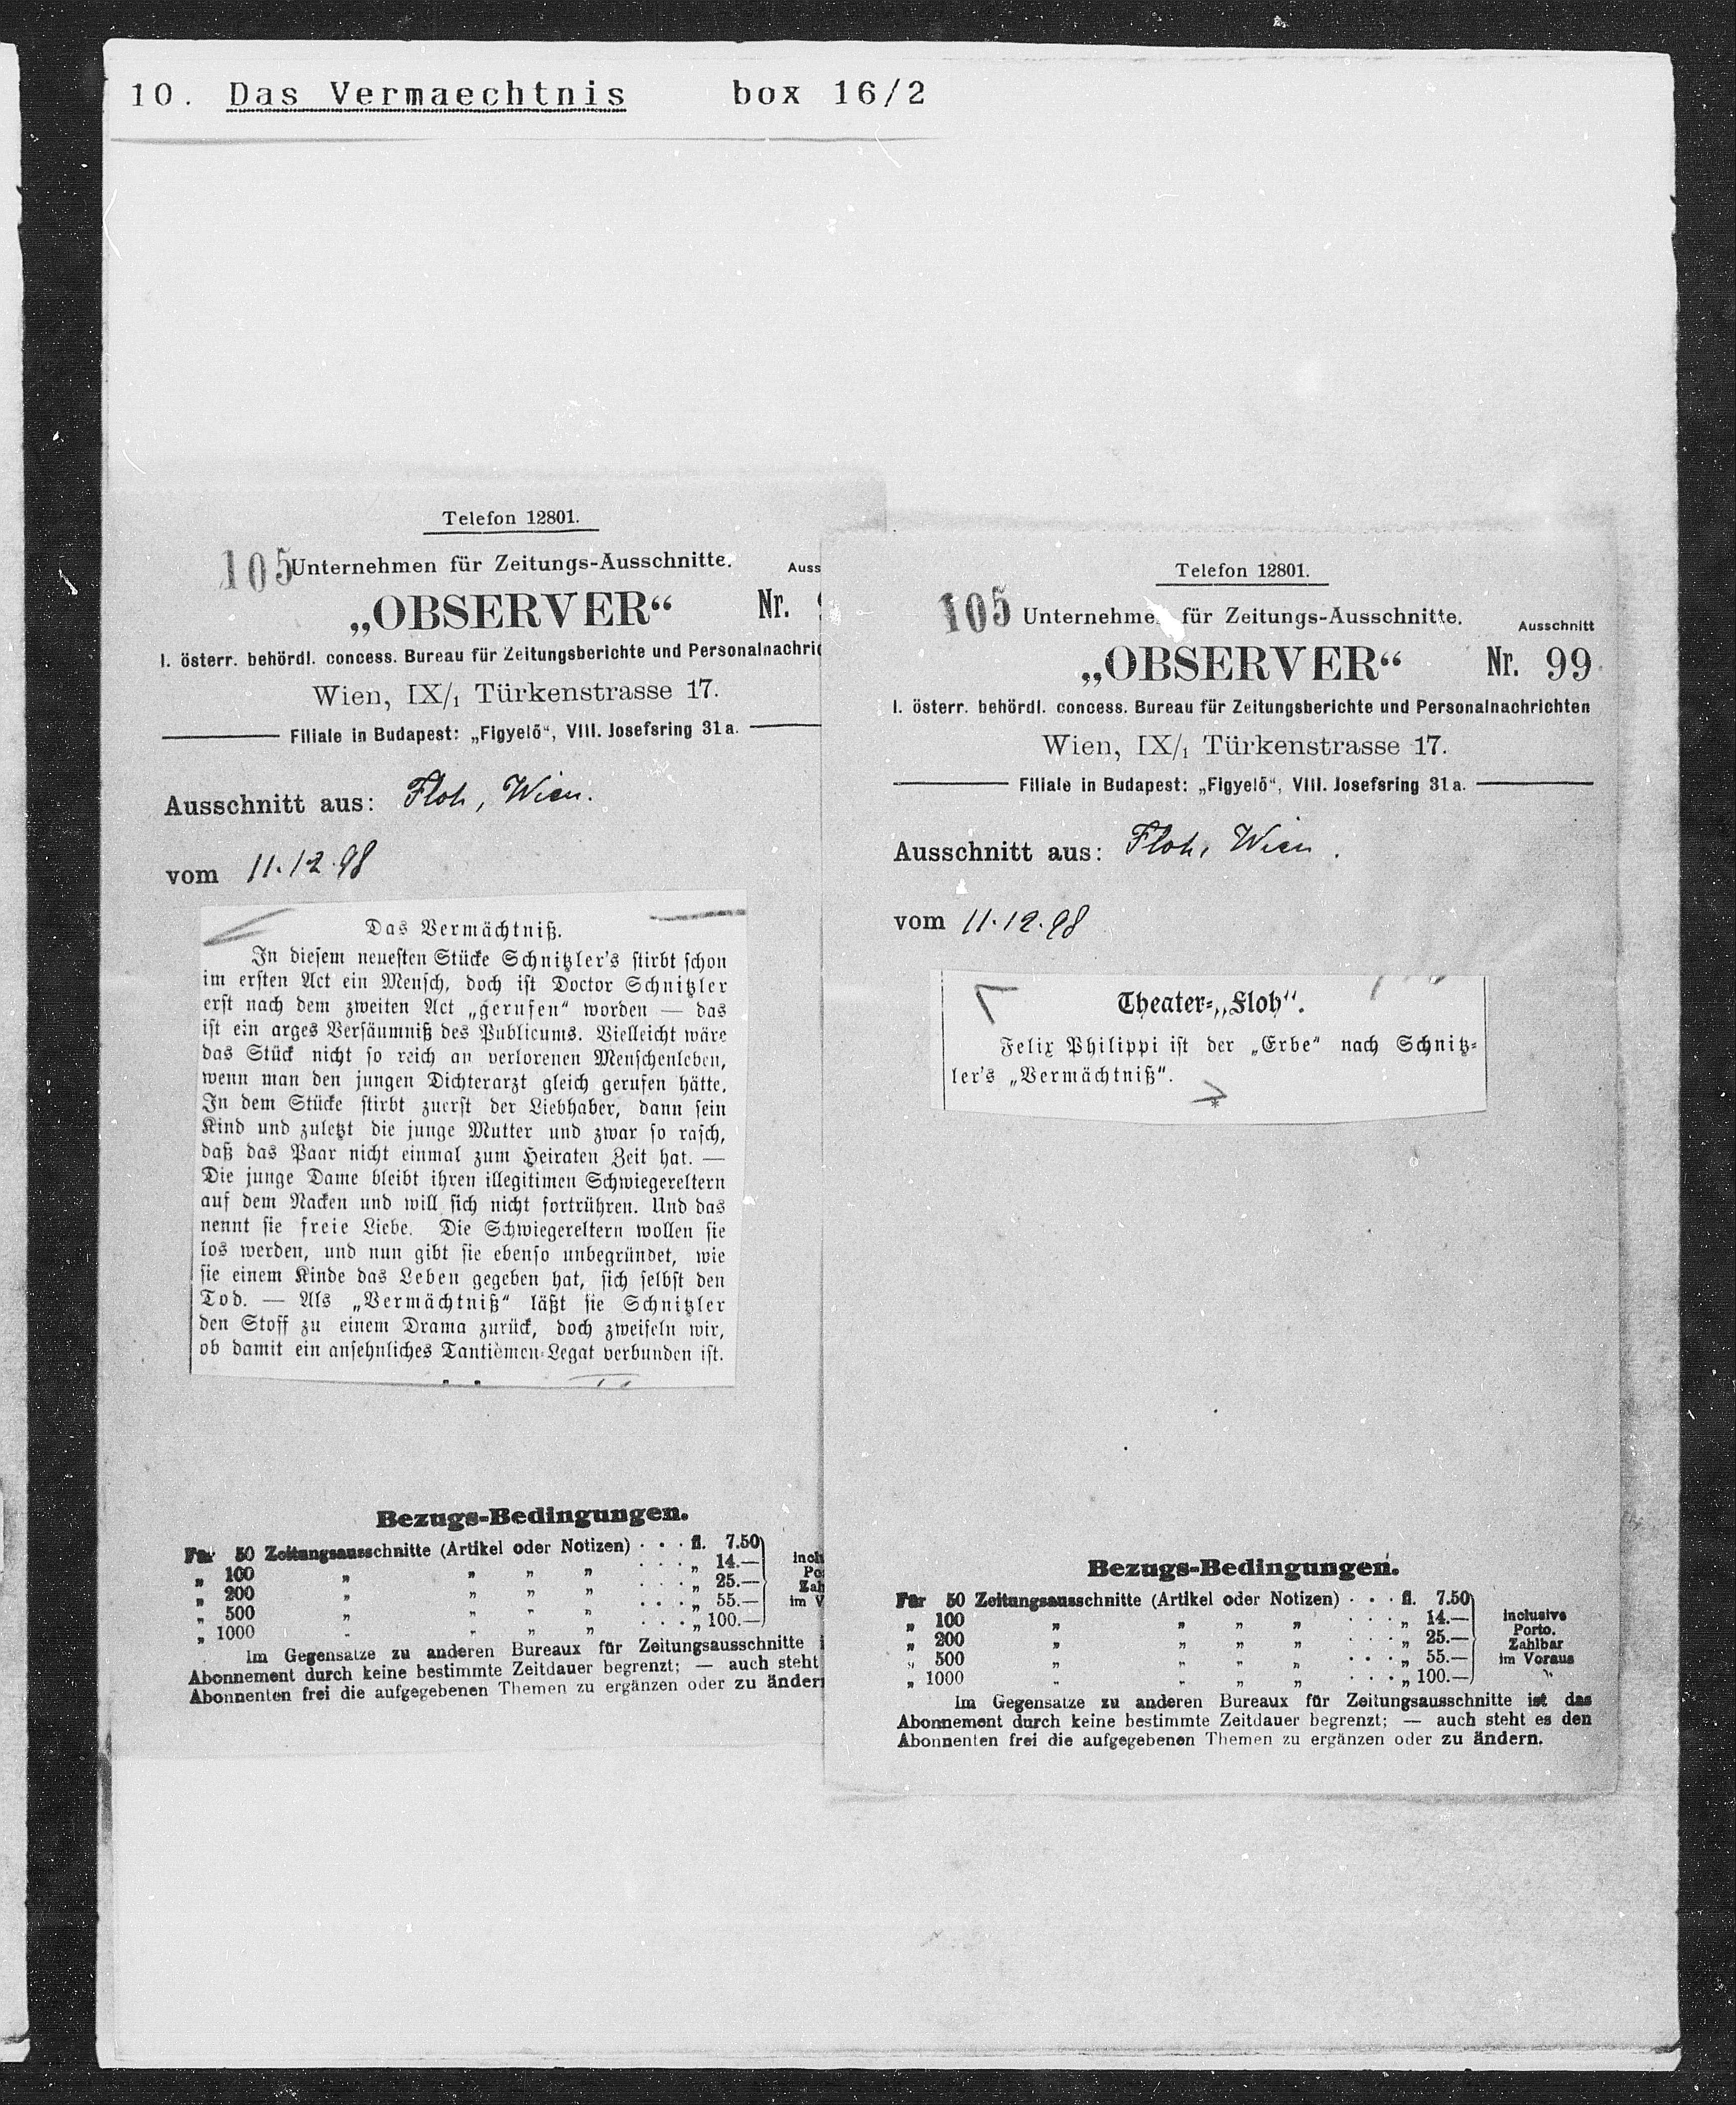 10. Das Vermaechtnis box 16/2
Telefon 12801.
105 Unternehmen für Zeitungs-Ausschnitte.
„OBSERVER“ Nr.
I. österr. behördl. concess. Bureau für Zeitungsberichte und
Wien, IX/1 Türkenstrasse 17.
Filiale in Budapest: „Figyelő“, VIII. Josefsring 31a.
Ausschnitt aus: Floh, Wien.
vom 11.12.98
Das Vermächtniß.
In diesem neuesten Stücke Schnitzler's stirbt schon
im ersten Act ein Mensch, doch ist Doctor Schnitzler
erst nach dem zweiten Act „gerufen“ worden — das
ist ein arges Versäumniß des Publicums. Vielleicht wäre
das Stück nicht so reich an verlorenen Menschenleben,
wenn man den jungen Dichterarzt gleich gerufen hätte.
In dem Stücke stirbt zuerst der Liebhaber, dann sein
Kind und zuletzt die junge Mutter und zwar so rasch,
daß das Paar nicht einmal zum Heiraten Zeit hat. —
Die junge Dame bleibt ihren illegitimen Schwiegereltern
auf dem Nacken und will sich nicht fortrühren. Und das
nennt sie freie Liebe. Die Schwiegereltern wollen sie
los werden, und nun gibt sie ebenso unbegründet, wie
sie einem Kinde das Leben gegeben hat, sich selbst den
Tod. — Als „Vermächtniß“ läßt sie Schnitzler
den Stoff zu einem Drama zurück, doch zweifeln wir,
ob damit ein ansehnliches Tantièmen-Legat verbunden ist.
Bezugs-Bedingungen.
Für 50 Zeitungsausschnitte (Artikel oder Notizen) . . . fl. 7.50
„ 100 „ „ „ „ . . . „ 14.—
„ 200 „ „ „ „ . . . „ 25.—
„ 500 „ „ „ „ . . . „ 55.—
„ 1000 „ „ „ „ . . . „ 100.—
Im Gegensatze zu anderen Bureaux für Zeitungsausschnitte
Abonnement durch keine bestimmte Zeitdauer begrenzt; — auch steht
Abonnenten frei die aufgegebenen Themen zu ergänzen oder zu
Telefon 12801.
105 Unternehmen für Zeitungs-Ausschnitte. Ausschnitt
„OBSERVER“ Nr. 99
I. österr. behördl. concess. Bureau für Zeitungsberichte und Personalnachrichten
Wien, IX/1 Türkenstrasse 17.
Filiale in Budapest: „Figyelő“, VIII. Josefsring 31a.
Ausschnitt aus: Floh, Wien.
vom 11.12.98
Theater-„Floh“.
Felix Philippi ist der „Erbe“ nach Schnitz-
ler's „Vermächtniß“.
*
Bezugs-Bedingungen.
Für 50 Zeitungsausschnitte (Artikel oder Notizen) . . . fl. 7.50
„ 100 „ „ „ „ . . . „ 14.— inclusive
„ 200 „ „ „ „ . . . „ 25.— Porto.
„ 500 „ „ „ „ . . . „ 55.— Zahlbar
„ 1000 „ „ „ „ . . . „ 100.— im Voraus
Im Gegensatze zu anderen Bureaux für Zeitungsausschnitte ist das
Abonnement durch keine bestimmte Zeitdauer begrenzt; — auch steht es den
Abonnenten frei die aufgegebenen Themen zu ergänzen oder zu ändern.